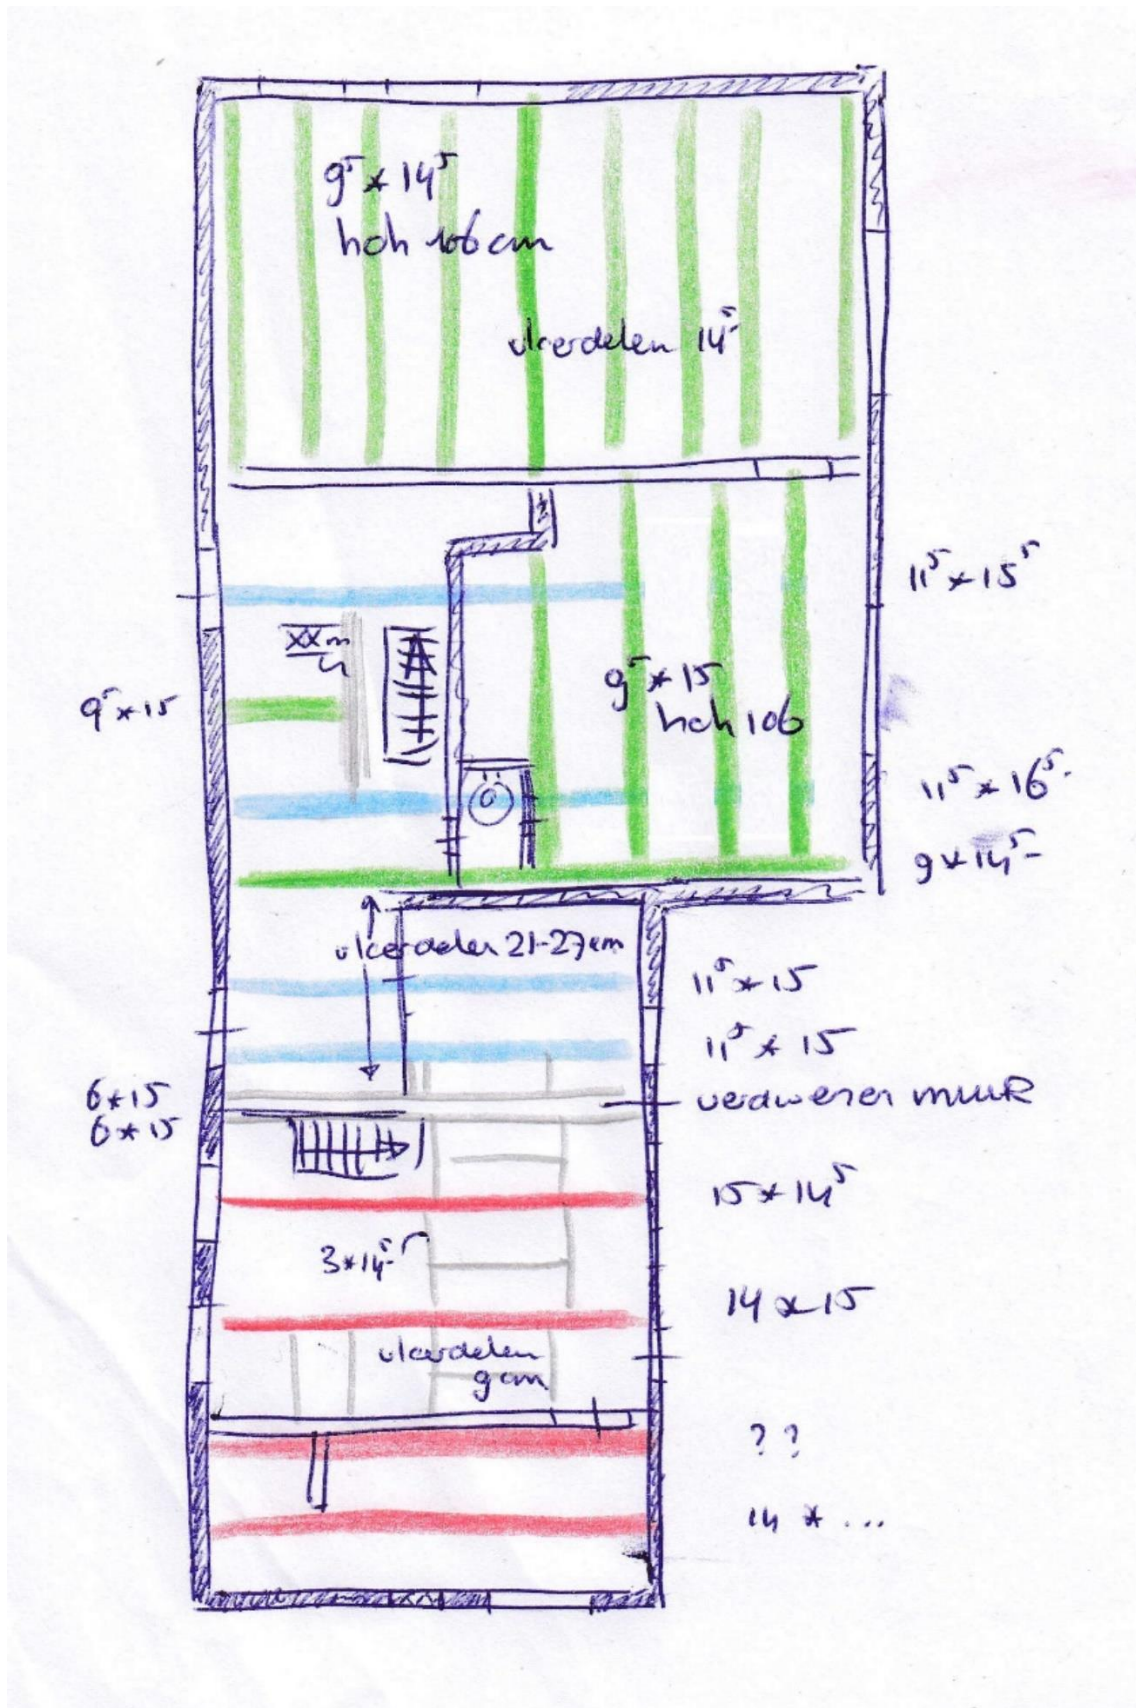 9⁵ * 14⁵
hoh 106 cm
vloerdelen 14⁵
11⁵ * 15⁵
9⁵ * 15
9⁵ * 15
hoh 106
11⁵ * 16⁵
9 * 14⁵
vloerdelen 21-27 cm
11⁵ * 15
11⁵ * 15
6 * 15
verdwenen muur
6 * 15
15 * 14⁵
3 * 14⁵
14 * 15
vloerdelen
9 cm
? ?
14 * ...